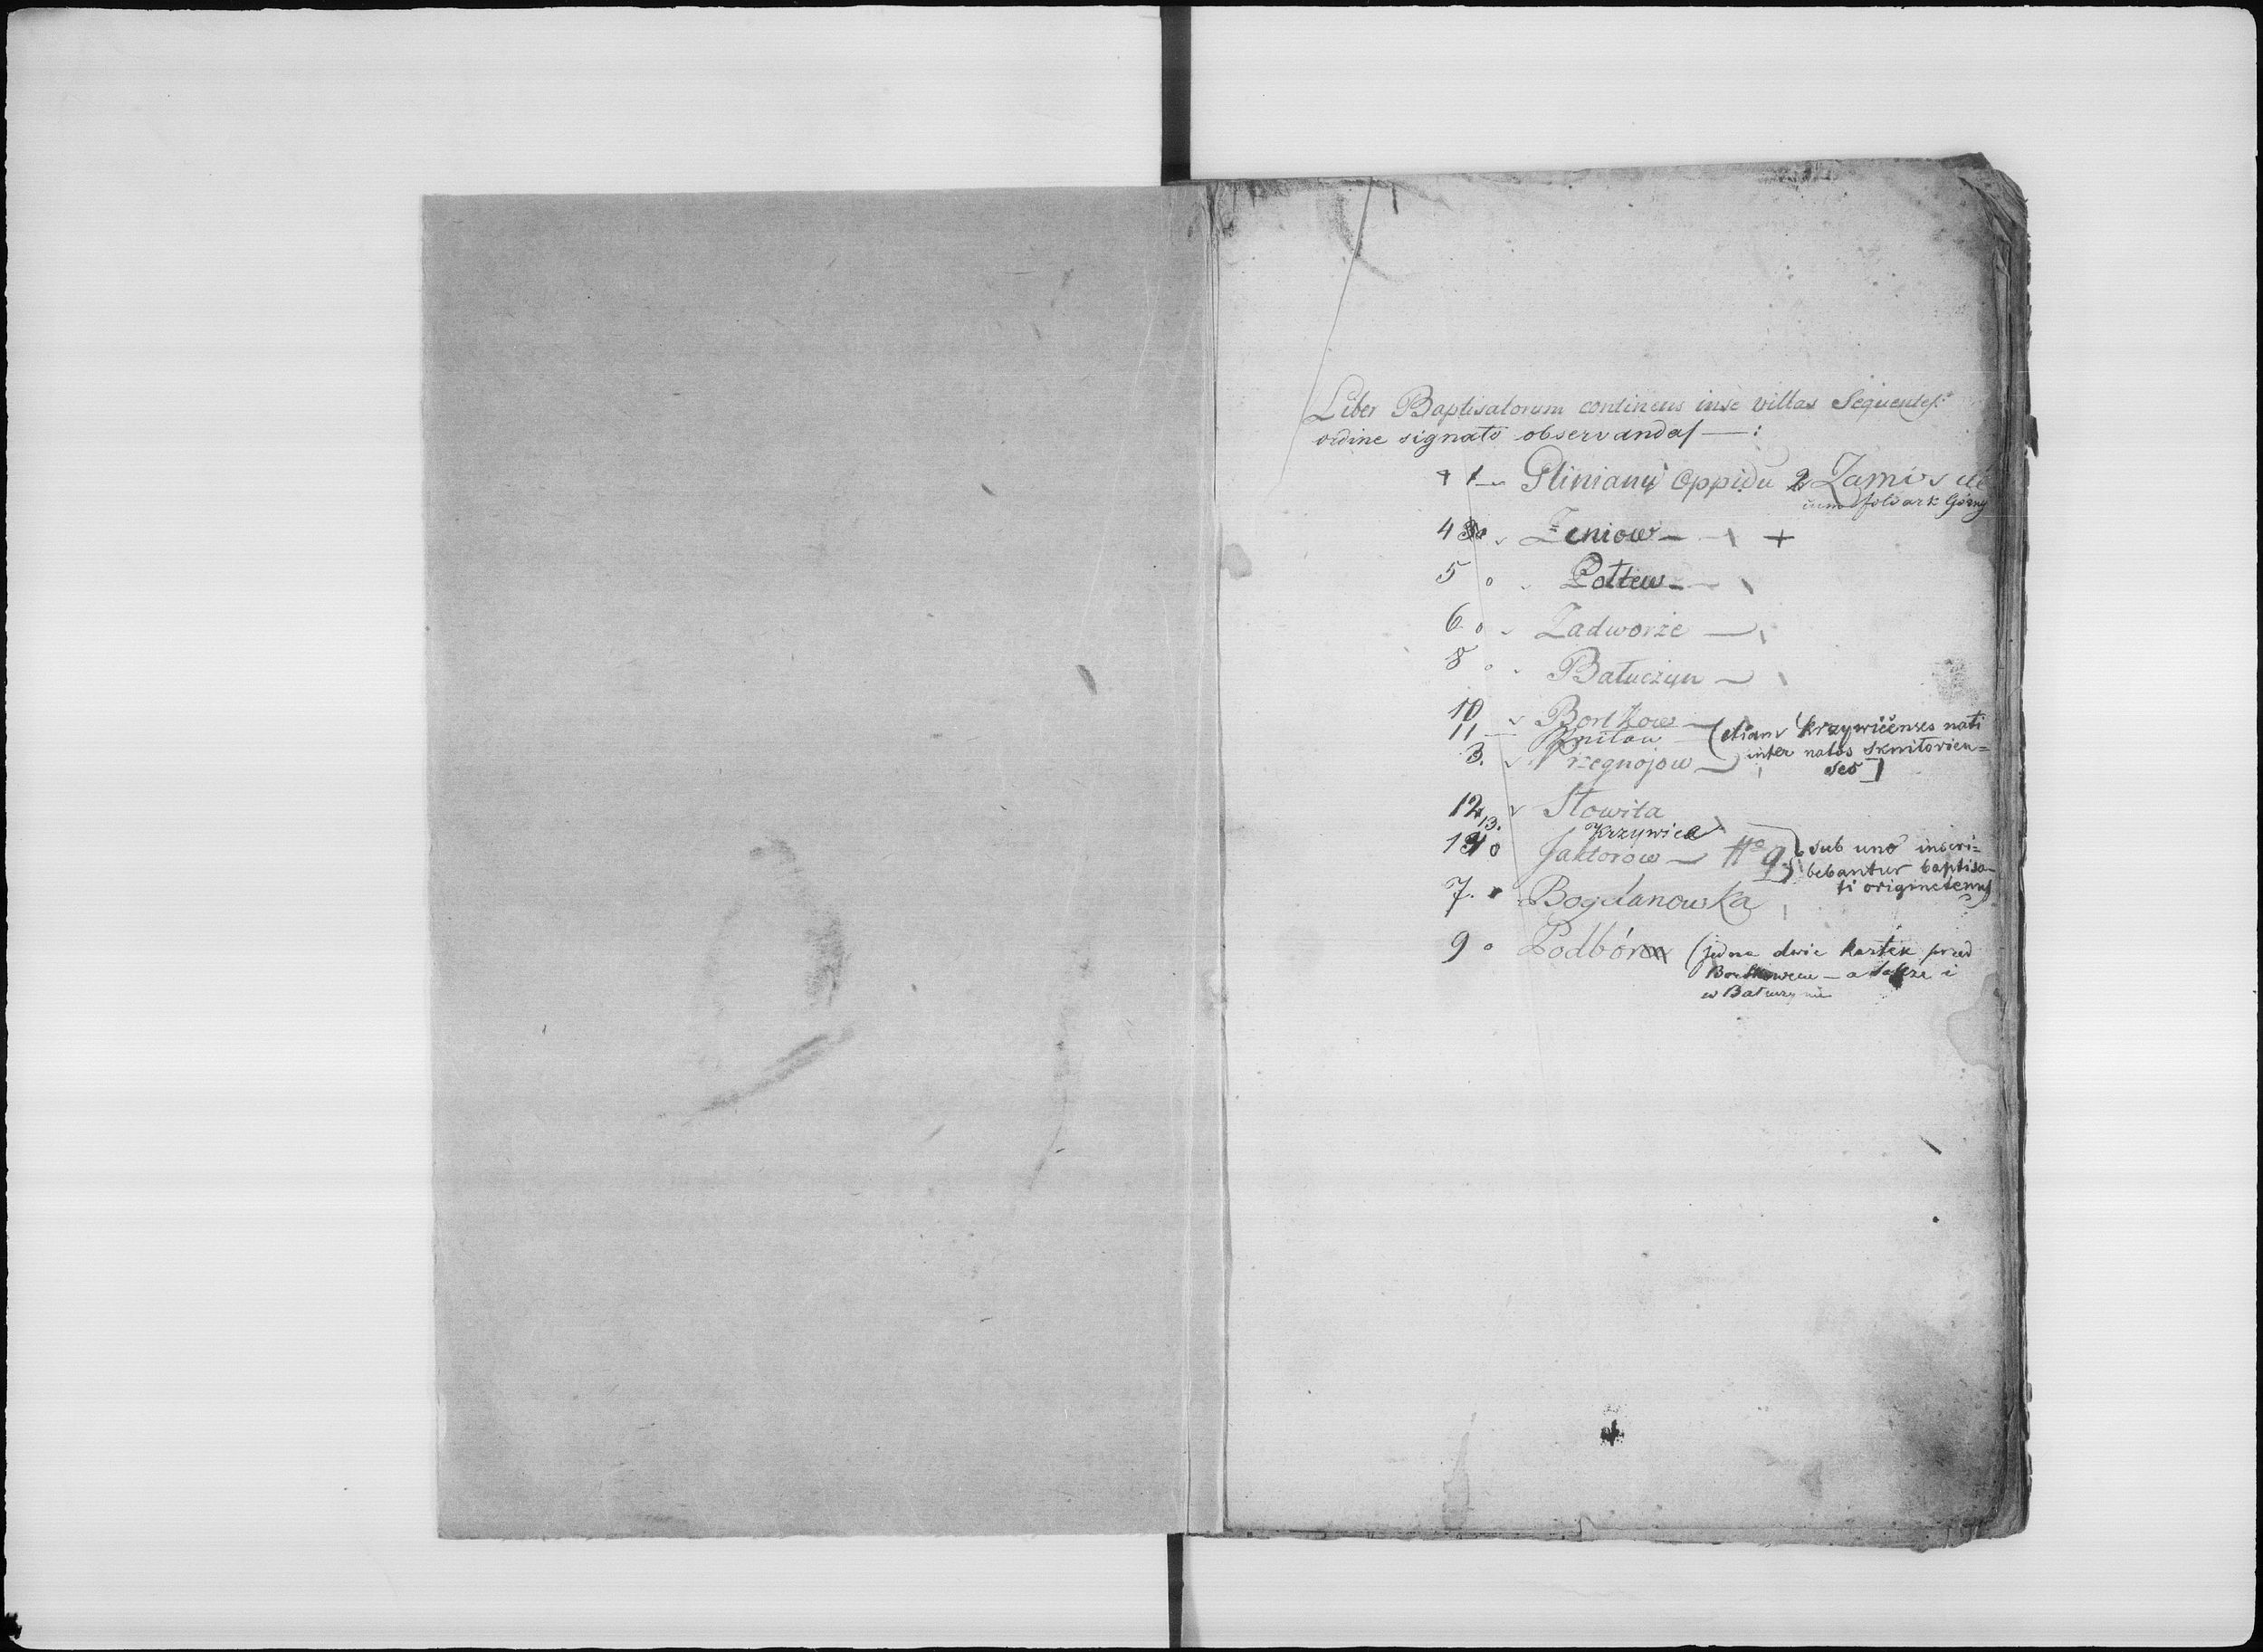 Liber Baptisatorum continens inse villas Sequentes
ordine signato observandas —:
+ 1 — Gliniany Oppidu 2 Zamoście
folwark Górny
4 Zeniow — +
5 o Połtew —
6 o Zadworze —
8 o Bałuczyn —
10 Bortkow —
11 — Sknitow — (etiam Krzywicenses nati
inter natos Sknitovien=
ses]
3. Przegnojow —
12 Słowita
13. Krzywice
14 o Jaktorow — No 9 } sub uno inscri=
bebantur baptisa=
ti originetenus
7. Bogdanowka
9 o Podbór (jedna dwie kartek przed
Bortkowem — a także i
w Bałuczynie